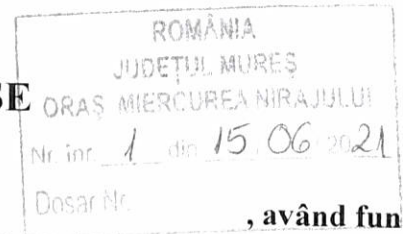 ROMÂNIA
JUDEȚUL MUREȘ
SE
ORAȘ MIERCUREA NIRAJULUI
Nr. înr. 1 din 15.06 2021
Dosar Nr.
, având fun